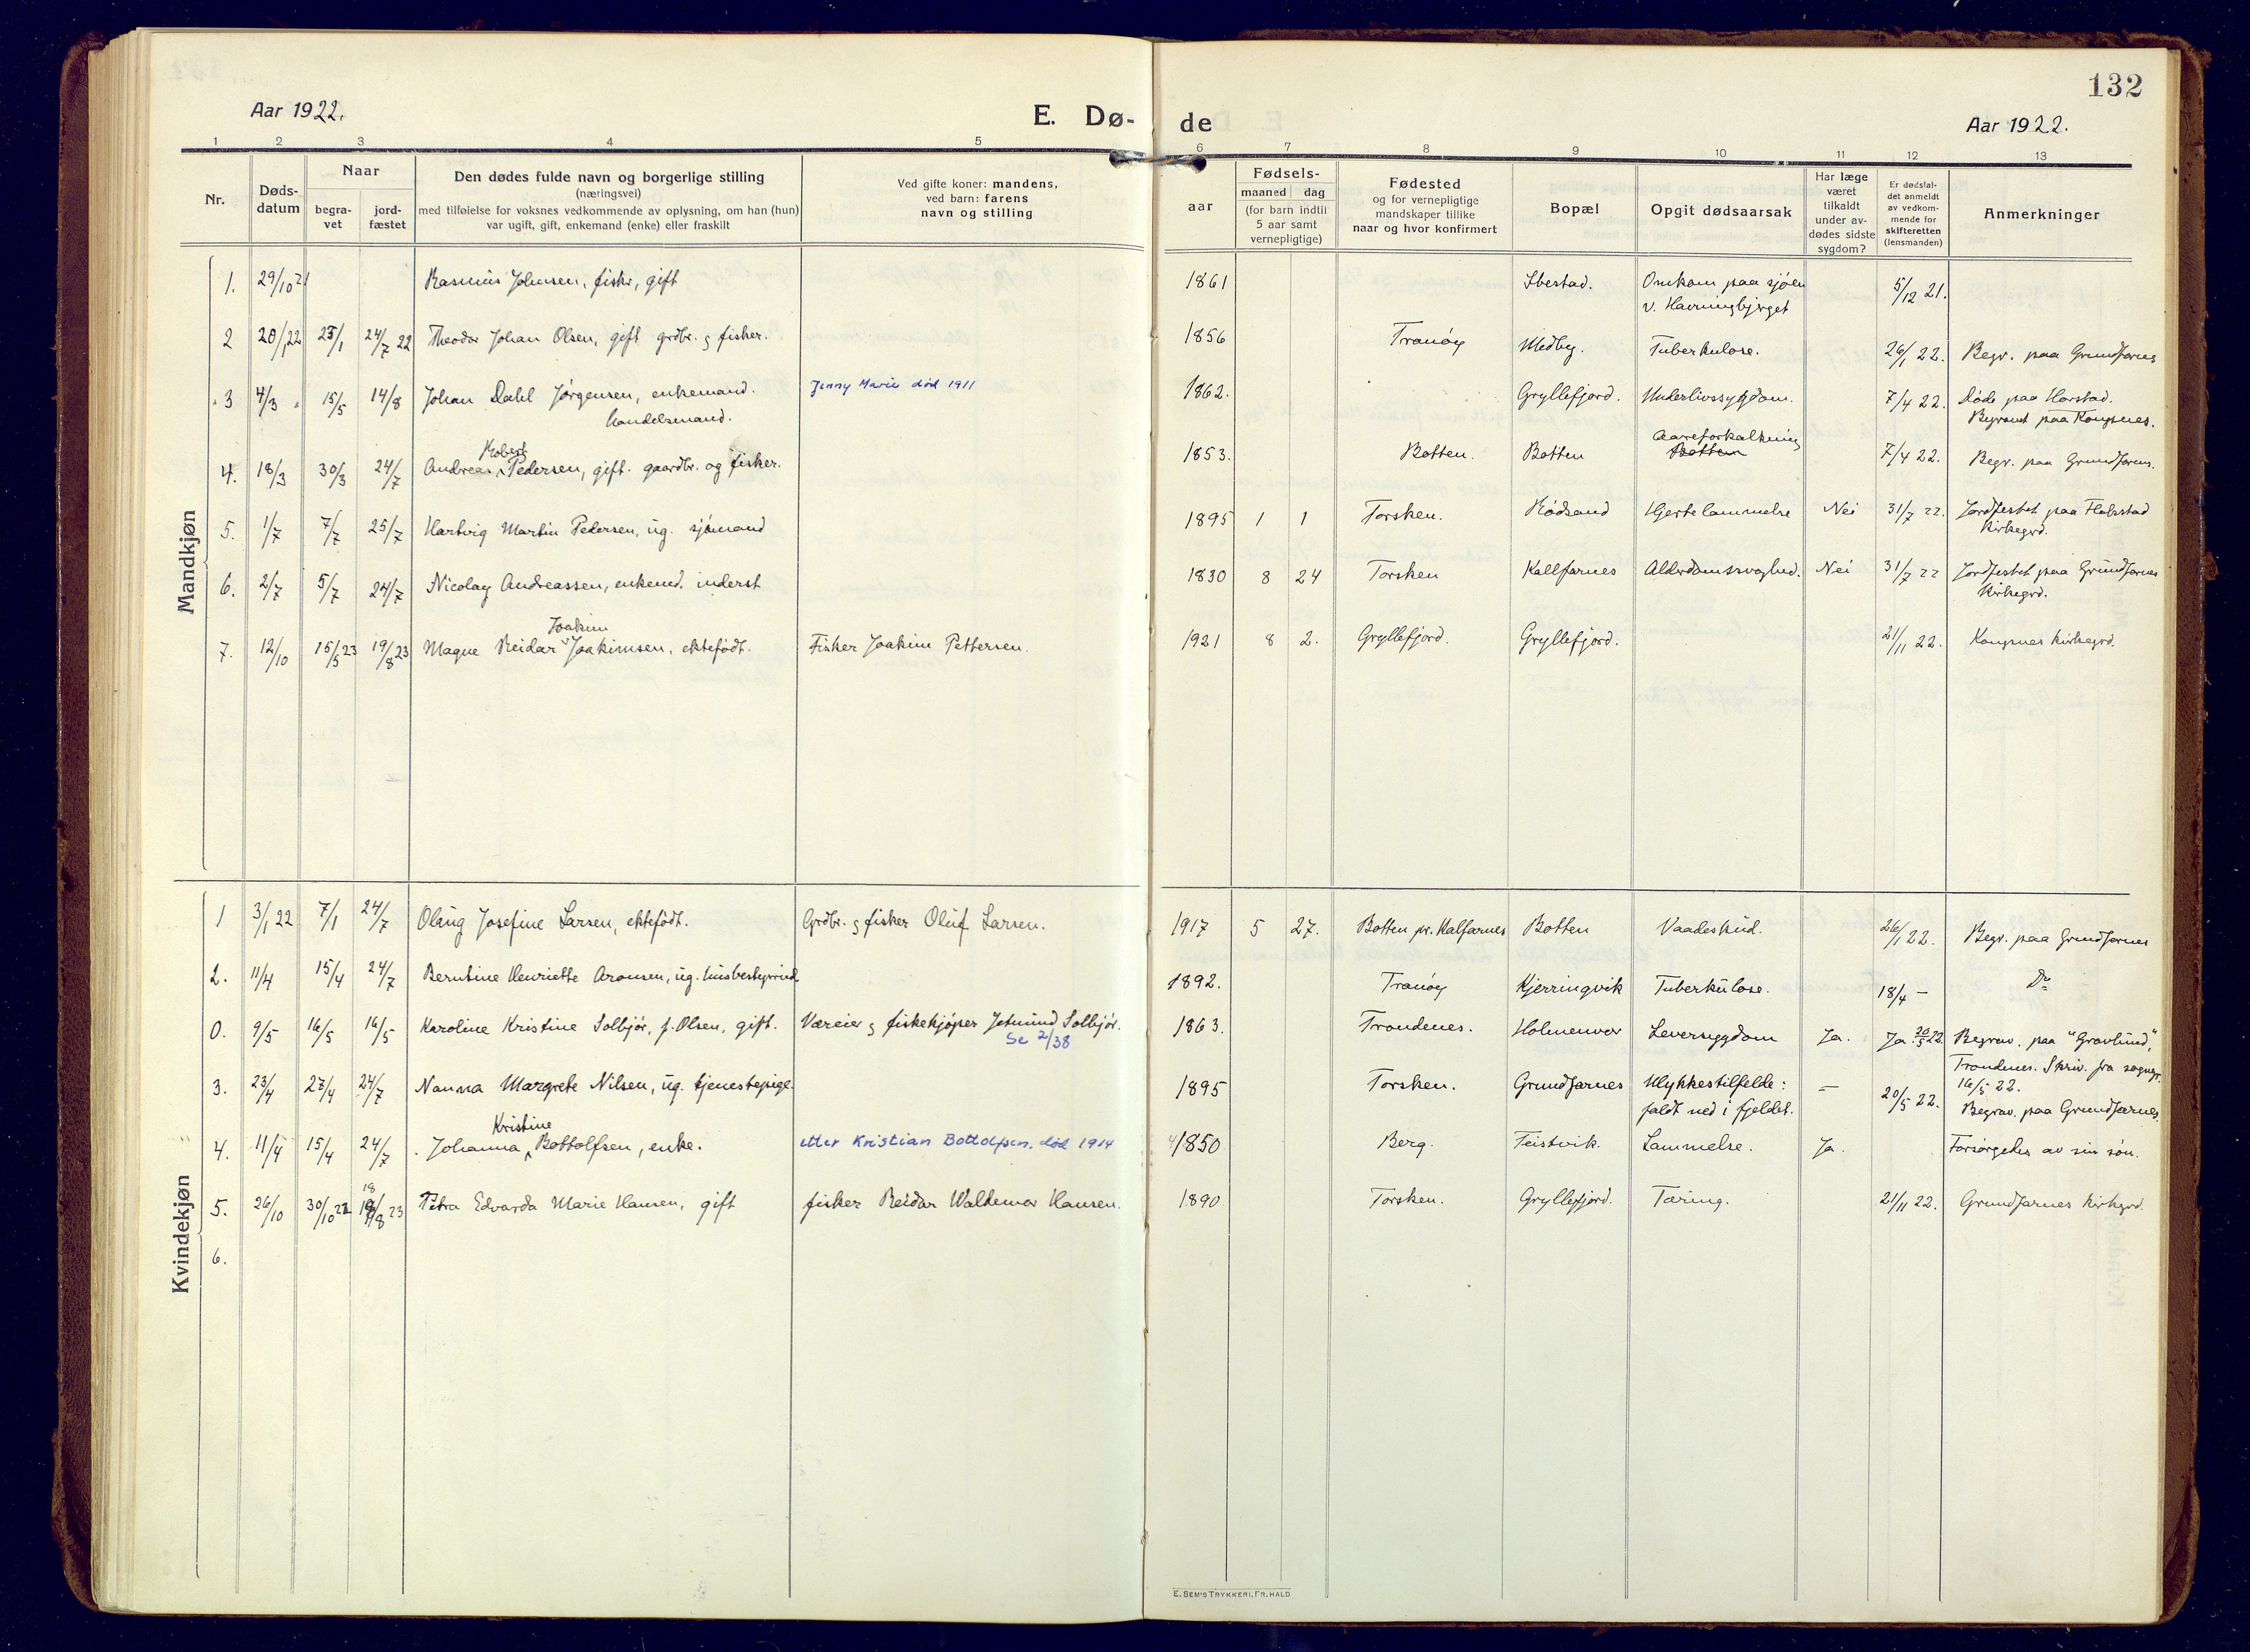 132
Aar 1922.
E. Dø-
de
Aar 1922.
1 2 3 4 5 6 7 8 9 10 11 12 13
Nr.
Døds-
datum
Naar
begra-
vet
jord-
fæstet
Den dødes fulde navn og borgerlige stilling
(næringsvei)
med tilføielse for voksnes vedkommende av oplysning, om han (hun)
var ugift, gift, enkemand (enke) eller fraskilt
Ved gifte koner: mandens,
ved barn: farens
navn og stilling
aar
Fødsels-
maaned dag
(for barn indtil
5 aar samt
vernepligtige)
Fødested
og for vernepligtige
mandskaper tillike
naar og hvor konfirmert
Bopæl
Opgit dødsaarsak
Har læge
været
tilkaldt
under av-
dødes sidste
sygdom?
Er dødsfal-
det anmeldt
av vedkom-
mende for
skifteretten
(lensmanden)
Anmerkninger
Mandkjøn
1. 29/10 21 Rasmus Johnsen, fisker, gift 1861 Ibestad. Omkom paa sjøen 5/12 21.
v. Havningbjerget
2 20/1 22 25/1 24/7 22 Theodor Johan Olsen, gift grdbr. & fisker. 1856 Tranøy Medby. Tuberkulose. 26/1 22. Begr. paa Grundfarnes
3 4/3 " 15/5 14/8 Johan Dahl Jørgensen, enkemand. Jenny Marie død 1911 1862. Gryllefjord. Underlivssygdom. 7/4 22. Døde paa Harstad.
handelsmand. Begravet paa Kongsnes.
Robert Aareforkalkning
4. 18/3 30/3 24/7 Andreas Pedersen, gift. gaardbr. og fisker. 1853. Botten. Botten Botten 7/4 22. Begr. paa Grundfarnes.
5. 1/7 7/7 25/7 Hartvig Martin Pedersen, ug. sjømand 1895 1 1 Torsken. Rødsand Hjertelammelse Nei 31/7 22. Jordfestet paa Flakstad
Kirkegrd.
6. 2/7 5/7 24/7 Nicolay Andreassen, enkemd. inderst 1830 8 24 Torsken Kallfarnes Alderdomssvaghed. Nei 31/7 22 Jordfestet paa Grundfarnes
Kirkegrd.
Joakim
7. 12/10 15/5 23 19/8 23 Magne Reidar Joakimsen, ektefødt. Fisker Joakim Pettersen. 1921 8 2. Gryllefjord. Gryllefjord. 21/11 22. Kongsnes kirkegrd.
Kvindekjøn
1 3/1 22 7/1 24/7 Olaug Josefine Larsen, ektefødt. Grdbr. & fisker Oluf Larsen. 1917 5 27. Botten pr. Kalfarnes Botten Vaadeskud. 26/1 22. Begr. paa Grundfarnes
2. 11/4 15/4 24/7 Berntine Henriette Aronsen, ug. husbestyrerinde 1892. Tranøy Kjerringvik Tuberkulose. 18/4 — Do
0. 9/5 16/5 16/5 Karoline Kristine Solbjør, f. Olsen, gift. Væreier & fiskekjøper Jetmund Solbjør. 1863. Trondenes. Holmenvær Leversygdom Ja. Ja. 20/5 22 Begrav. paa "Gravlund",
Se 2/38
Trondenes. Skriv. fra sognepr.
16/5 22.
3. 23/4 27/4 24/7 Nanna Margrete Nilsen, ug. tjenestepige. 1895 Torsken. Grundfarnes Ulykkestilfelde: — 20/5 22.
faldt ned i fjeldet. Begrav. paa Grundfarnes.
Kristine
4. 11/4 15/4 24/7 Johanna Bottolfsen, enke. etter Kristian Bottolfsen, død 1914 1850 Berg. Teistvik. Lammelse. Ja. Forsørgedes av sin søn.
18
5. 26/10 30/10 22 19/8 23 Petra Edvarda Marie Hansen, gift fisker Reidar Waldemar Hansen. 1890 Torsken. Gryllefjord. Tæring. 21/11 22. Grundfarnes kirkegrd.
6.
E. SEM'S TRYKKERI, FR. HALD